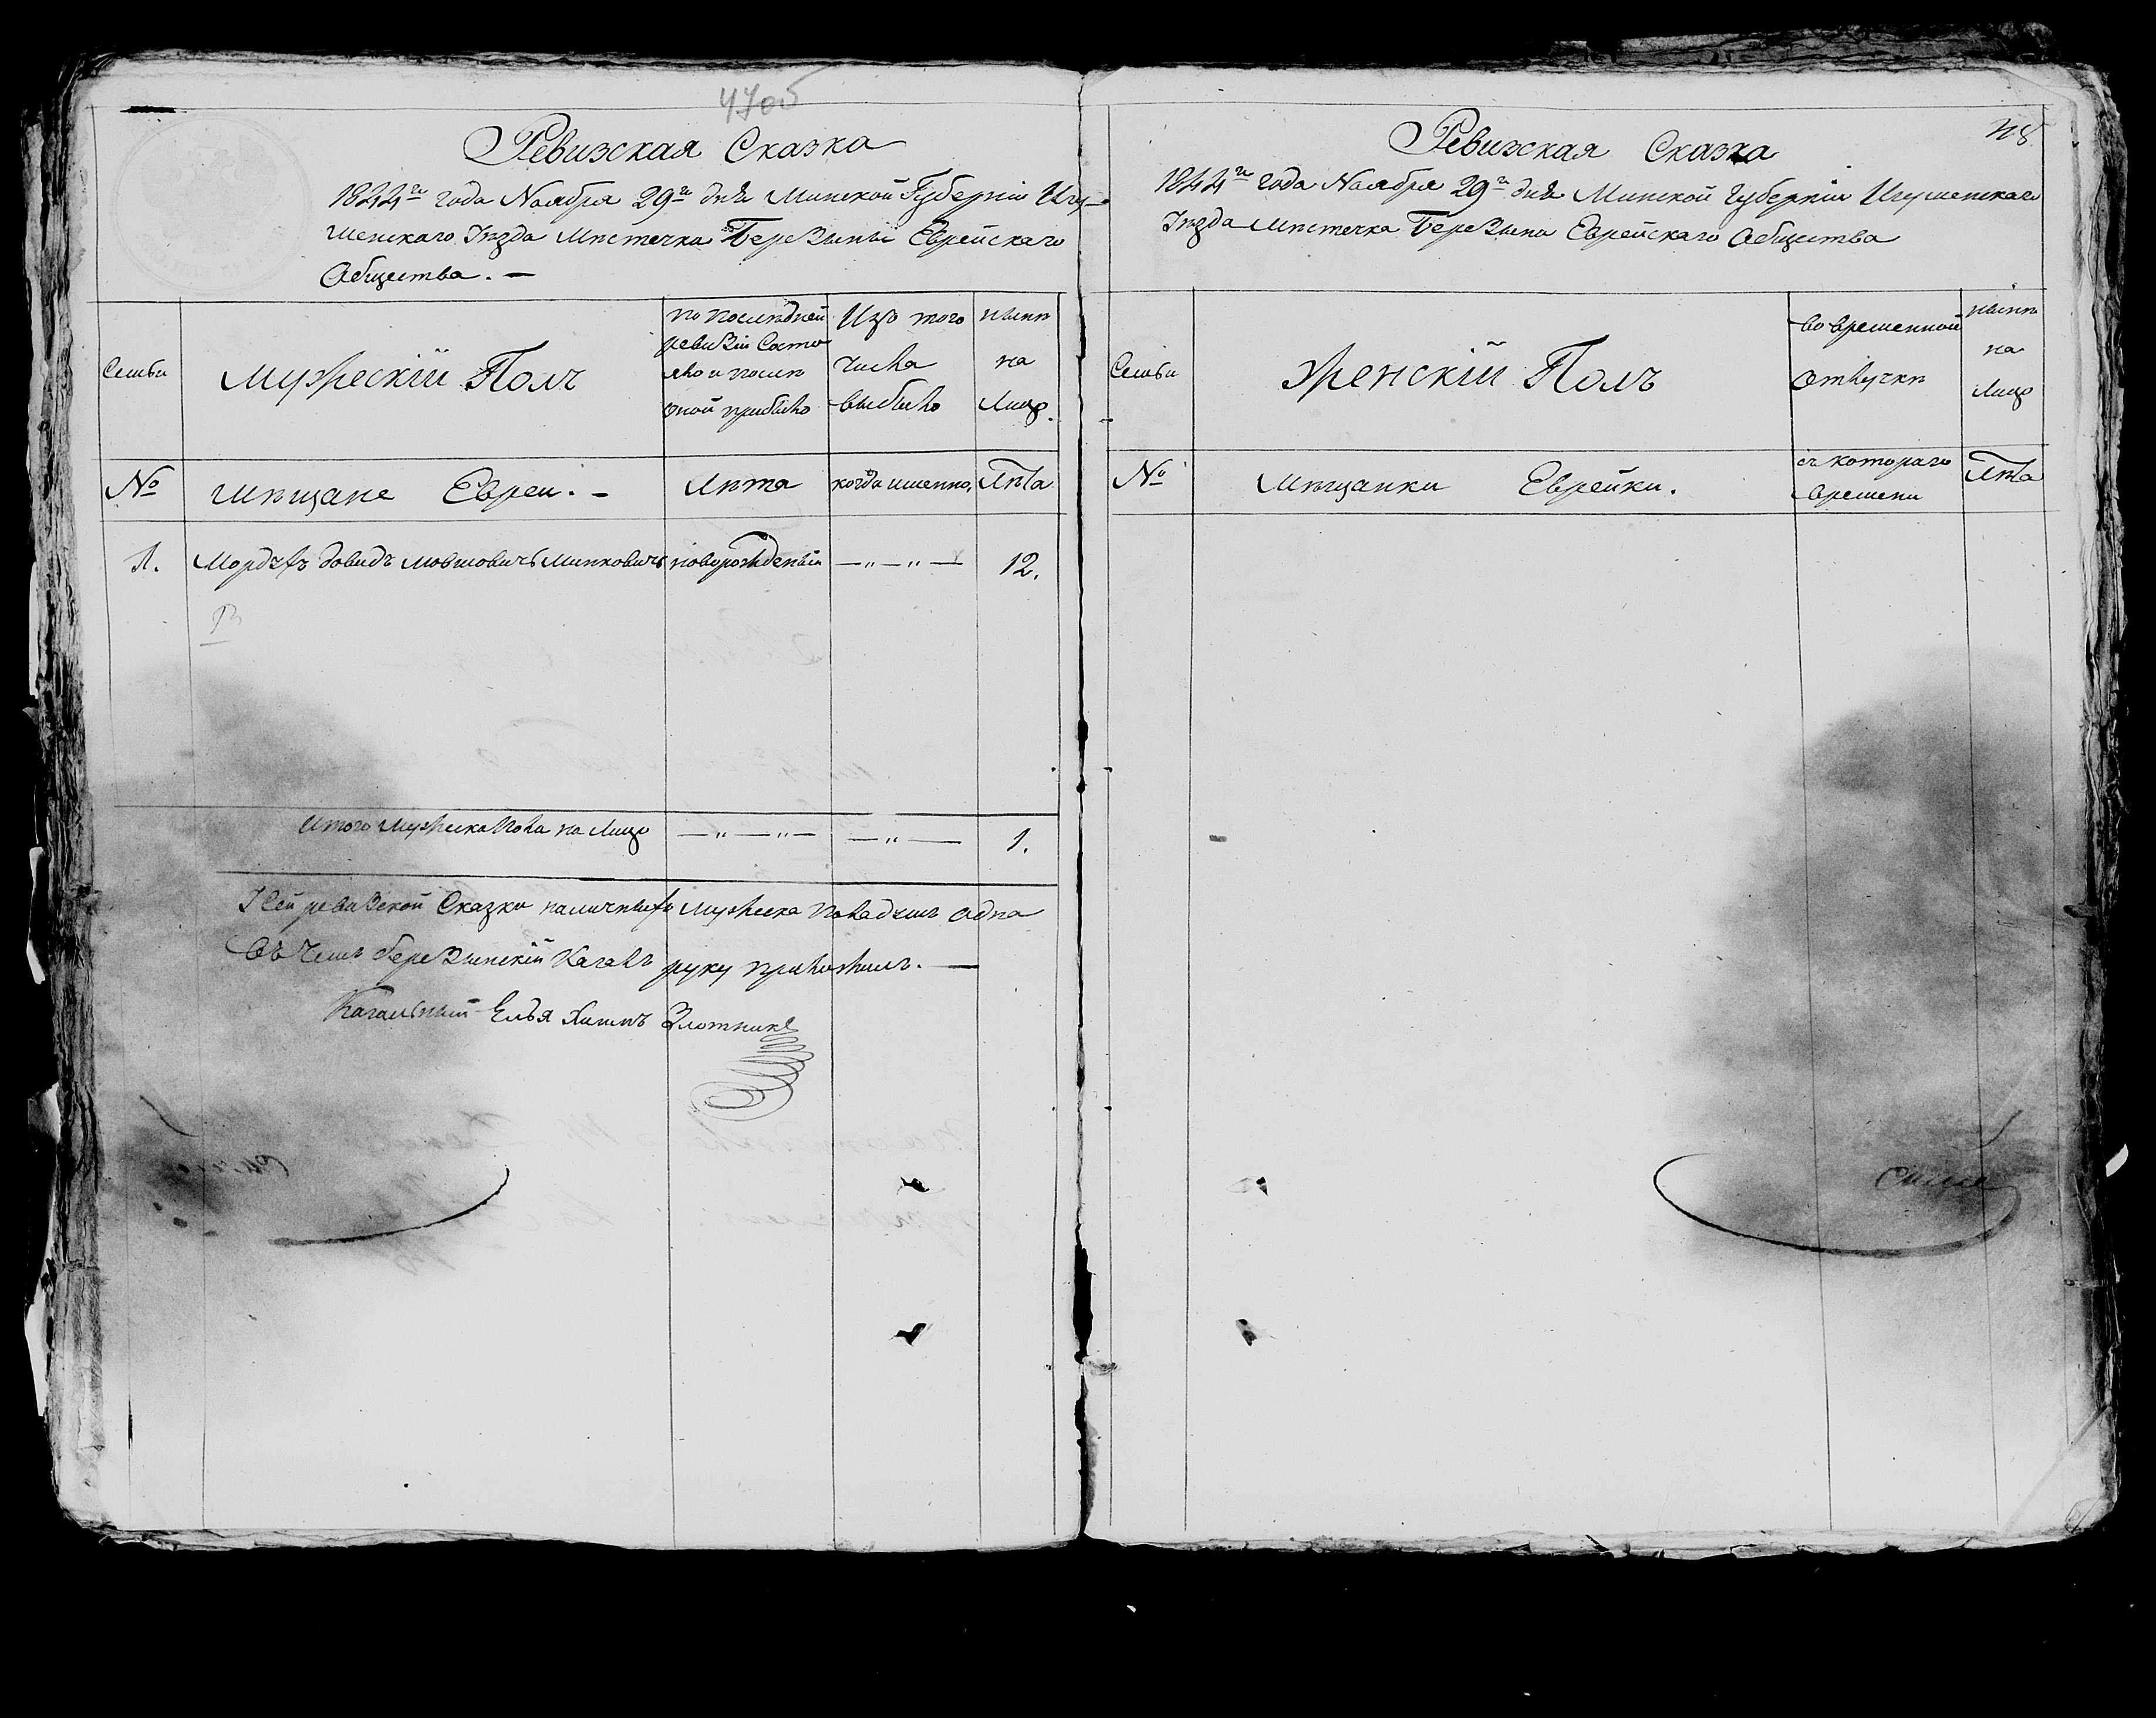 47об
Ревизская Сказка
1844го года Ноября 29го дня Минской Губерніи Игу-
менскаго Уѣзда Мѣстечка Березины Еврейскаго
Общества. —
Семьи
Мужескій Полъ
по послѣдней
ревизіи состо
яло и послѣ
оной прибыло
Изъ того
числа
выбыло
нынѣ
на
лицо.
№
мѣщане Евреи. —
Лѣта
когда именно,
Лѣта
1.
Мордухъ Довидъ Мовшовичъ Минковичъ
новорожденый
— „ — „ —
12.
Итого Мужеска пола на лицо
— „ — „ —
— „ —
1.
Сей ревизской Сказки наличныхъ Мужеска пола душъ одна
въ чемъ березинскій Кагалъ руку приложилъ. —
Кагальный Елья Хаимъ Злотникъ
48
Ревизская Сказка
1844го года Ноября 29го дня Минской Губерніи Игуменскаго
Уѣзда Мѣстечка Березина Еврейскаго Общества
Семьи
Женскій Полъ
во временной
отлучкѣ
нынѣ
на
лицо
№
Мѣщанки Еврейки.
съ котораго
времени
Лѣта